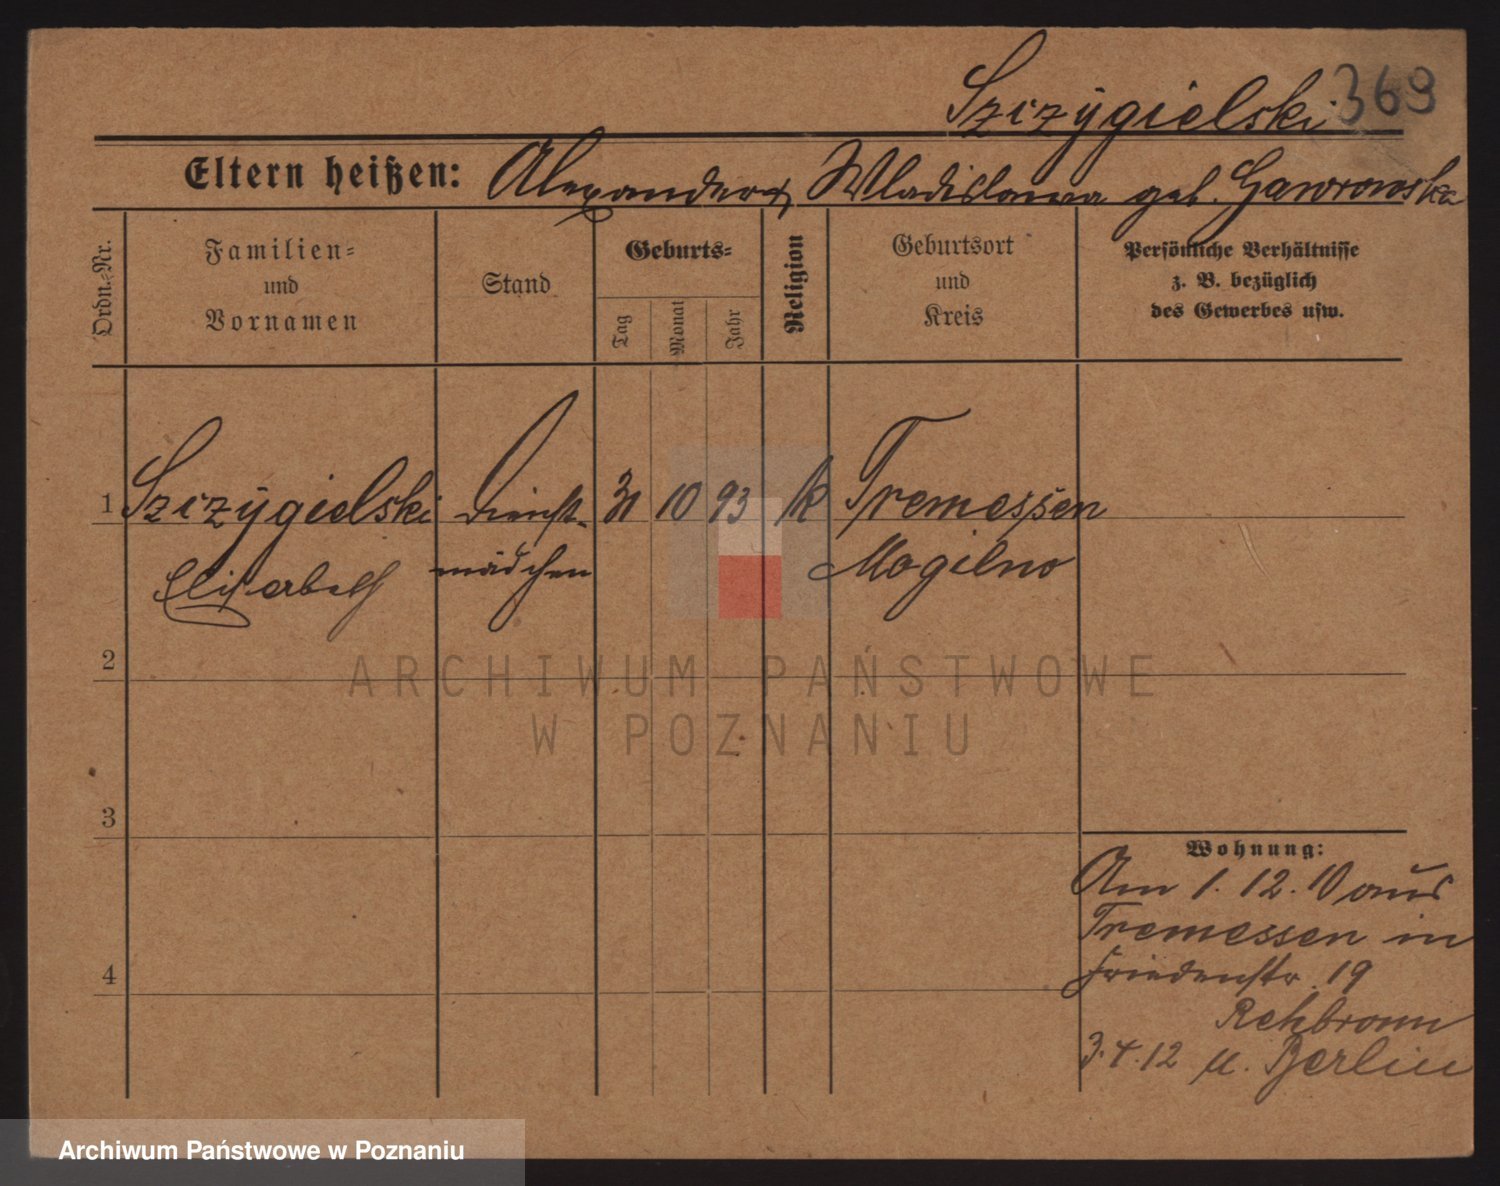 Szczygielski 369
Eltern heißen: Alexander & Wladislawa geb. Gawrowska
Ordn.-Nr.
Familien-
und
Vornamen
Stand
Geburts-
Tag
Monat
Jahr
Religion
Geburtsort
und
Kreis
Persönliche Verhältnisse
z. B. bezüglich
des Gewerbes usw.
1 Szczygielski Dienst- 31 10 93 k Tremessen
Elisabeth mädchen Mogilno
2
3
4
Wohnung:
Am 1. 12. 10 aus
Tremessen in
Friedenstr. 19
Rehbronn
3.4.12 n. Berlin
ARCHIWUM PAŃSTWOWE
W POZNANIU
Archiwum Państwowe w Poznaniu